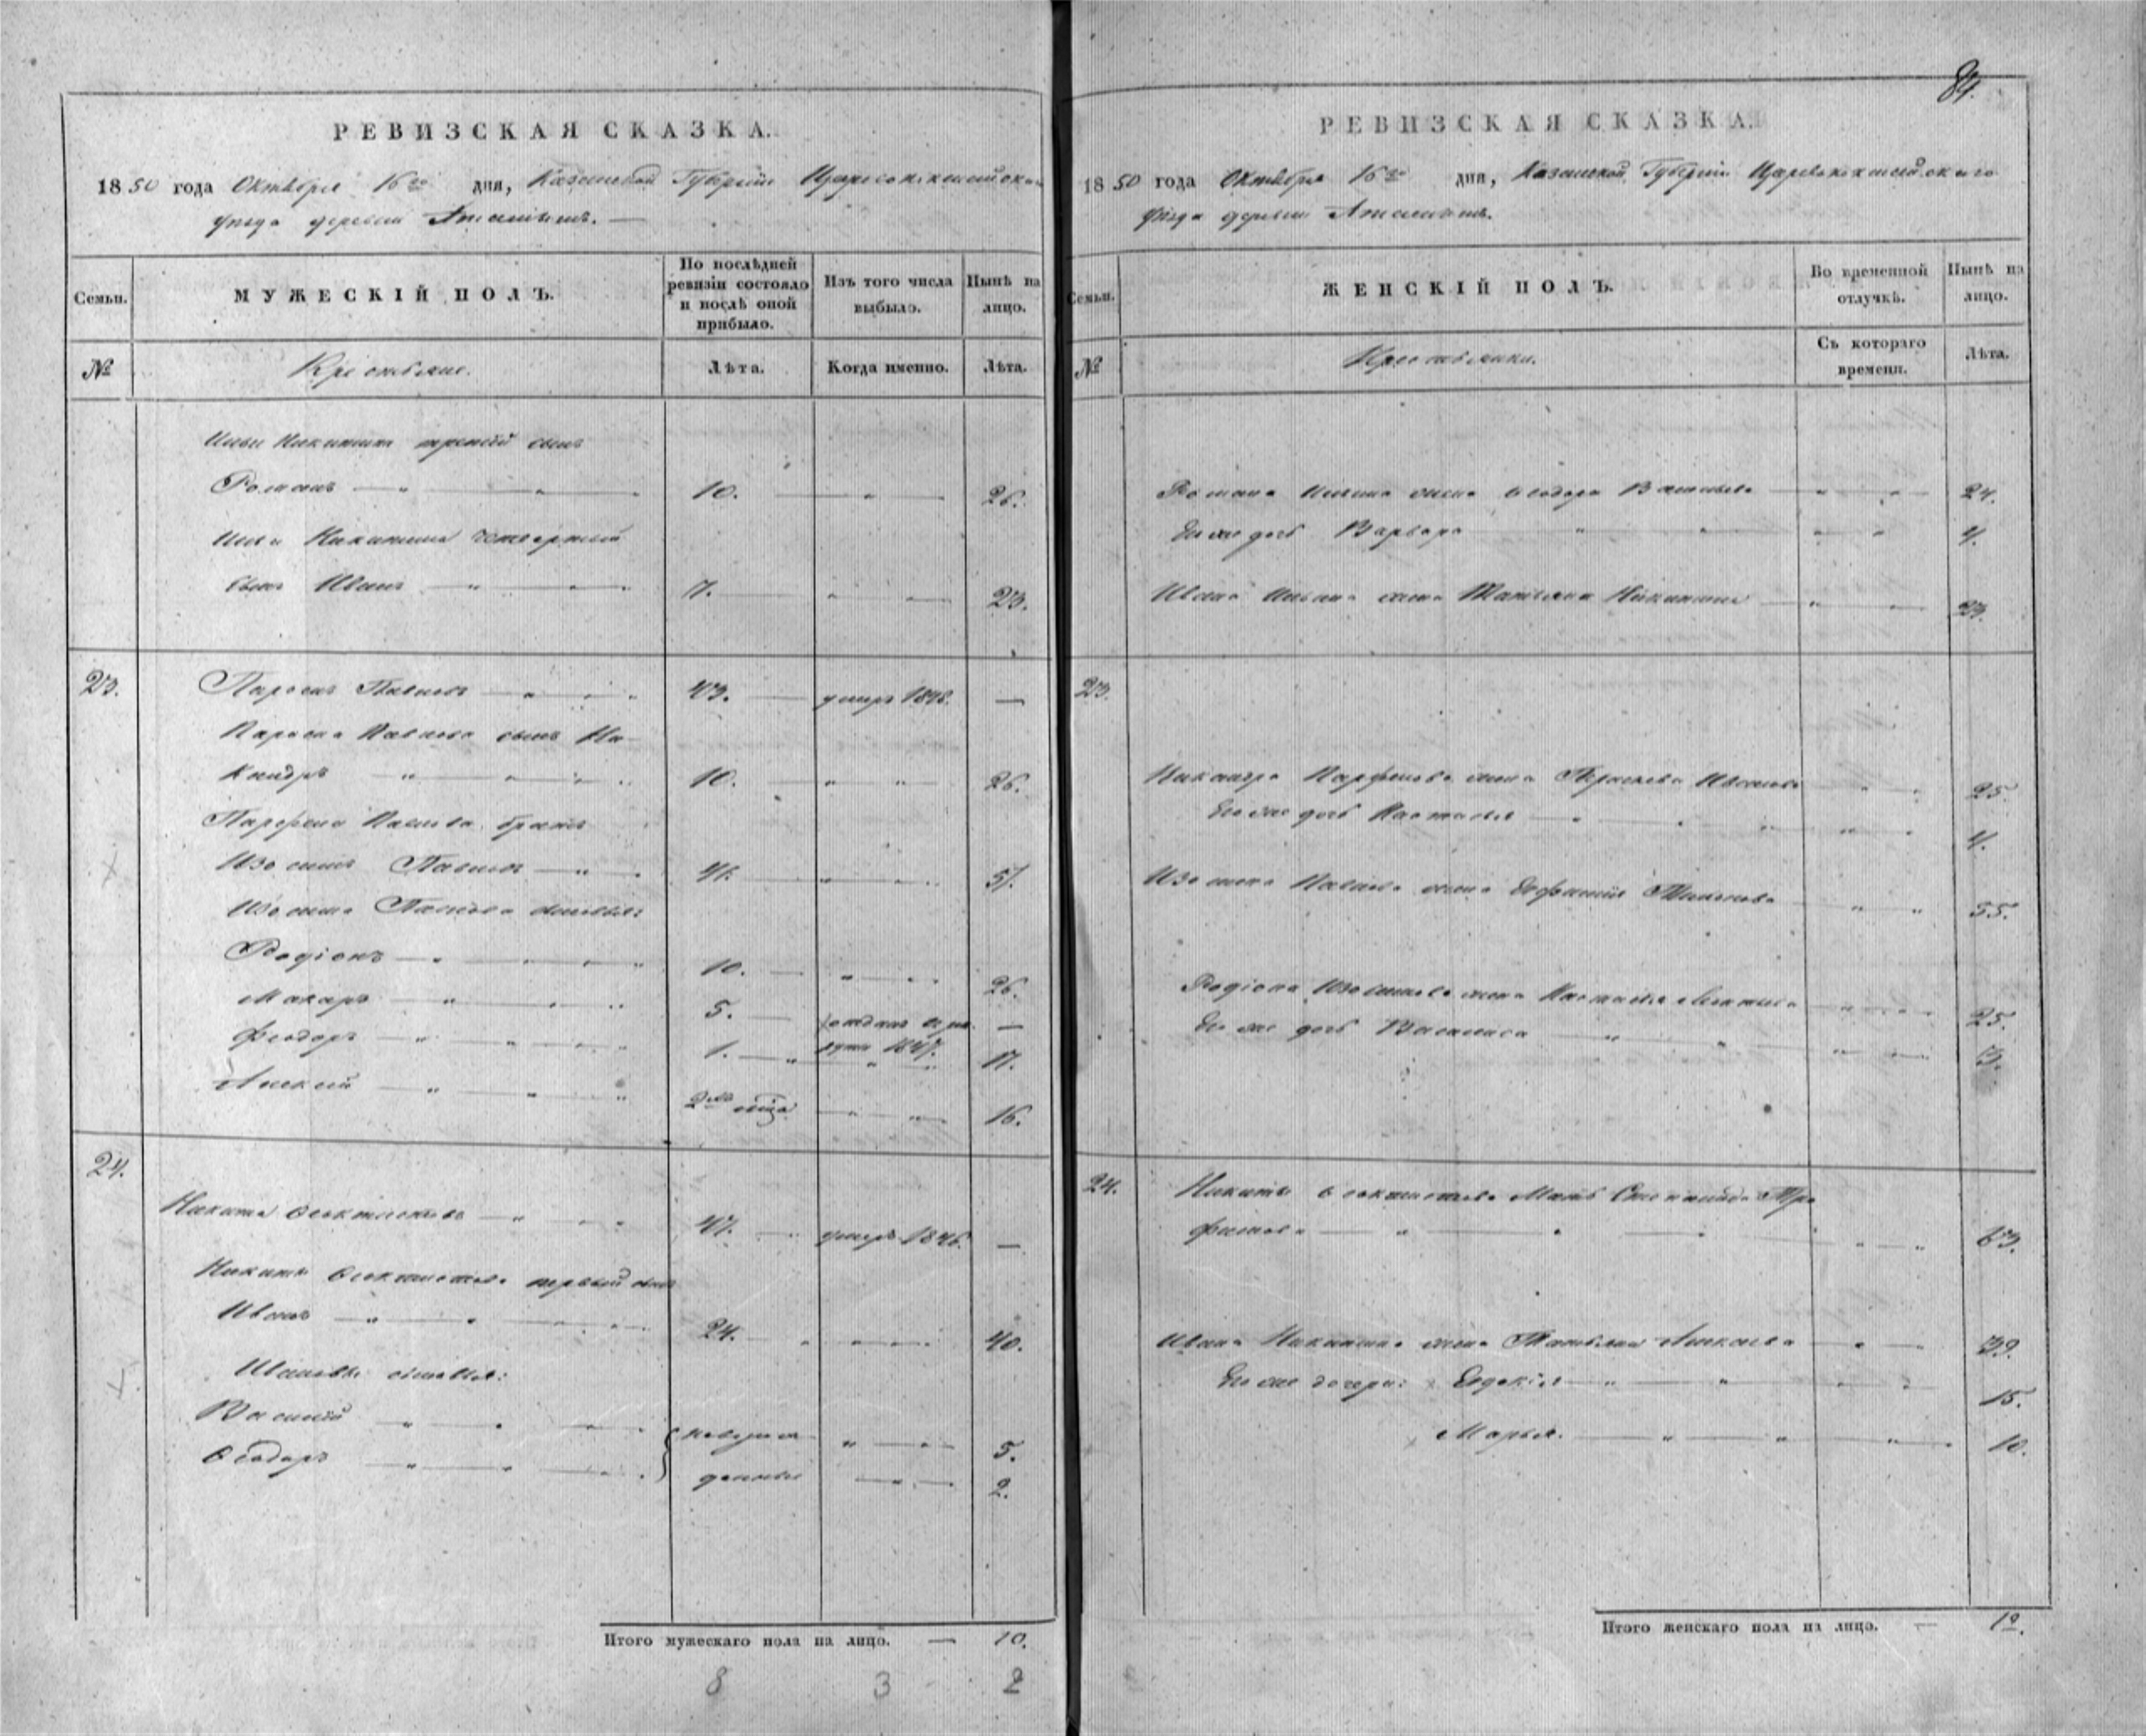 84.
РЕВИЗСКАЯ СКАЗКА.
1850 года Октября 16го дня, Казанской Губернiи Царевококшайскаго
уѣзда деревни
Семьи.
МУЖЕСКIЙ ПОЛЪ.
По послѣдней ревизiи состояло и послѣ оной прибыло.
Изъ того числа выбыло.
Нынѣ на лицо.
№
Крестьяне.
Лѣта.
Когда именно.
Лѣта.
Ильи Никитина третiй сынъ
Романъ 10. 26.
Ильи Никитина четвертый
сынъ Иванъ 7. 23.
23. Павловъ 43. умеръ 1848. —
Павлова сынъ Ни-
кандръ 10. 26.
Парфена Павлова братъ
Изосимъ Павловъ 41. 57.
Изосима Павлова сыновья:
Родiонъ 10. 26.
Макаръ 5. отданъ въ рек- —
руты 1847.
Феодоръ 1. 17.
Алексей 2хъ 16.
24.
Никита Феоктистовъ 47. умеръ 1846. —
Никиты Феоктистова первый сынъ
Иванъ 24. 40.
Ивановы сыновья:
Василiй новорож- 5.
Ѳеодоръ денные 2.
Итого мужескаго пола на лицо. — 10.
8 3 2
РЕВИЗСКАЯ СКАЗКА.
1850 года Октября 16го дня, Казанской Губернiи Царевококшайскаго
уѣзда деревни
Семьи.
ЖЕНСКIЙ ПОЛЪ.
Во временной отлучкѣ.
Нынѣ на лицо.
№
Крестьянки.
Съ котораго времени.
Лѣта.
Романа Ильина жена Ѳеодора Васильева 24.
Ево же дочь Варвара 4.
Ивана Ильина жена Татьяна Никитина 23.
23.
Никандра Парфенова жена Иванова 25.
Ево же дочь Настасья 4.
Изосима Павлова жена 55.
Родiона Изосимова жена Настасья 25.
Ево же дочь Василиса 3.
24. Никиты Феоктистова Мать Степанида Тро-
фимова 63.
Ивана Никитина жена Татьяна Алексеева 39.
Ево же дочери: Евдокiя 15.
Марья. 10.
Итого женскаго пола на лицо. — 10.